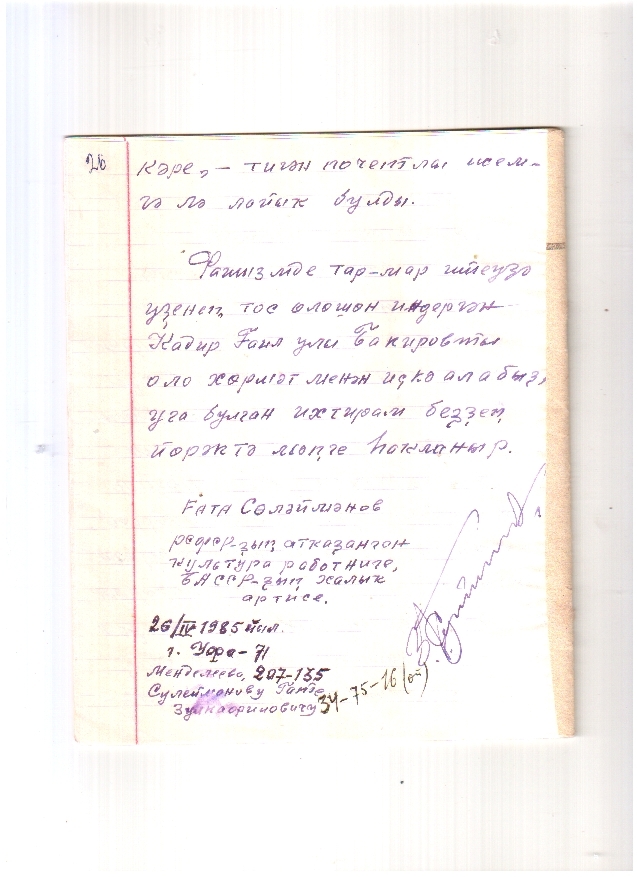 26
кәре, – тигән почетлы исем-
гә лә лайыҡ булды.
Фашизмде тар-мар итеүҙә
үҙенең төс өлөшөн индергән
Кадир Ғаил улы Бакировты
оло хөрмәт менән иҫкә алабыҙ,
уға булған ихтирам беҙҙең
йөрәктә мәңге һаҡланыр.
Ғата Сөләймәнов
РСФСР-ҙың атҡаҙанған
культура работниге,
БАССР-ҙың халыҡ
артисе.
26/IV 1985 йыл.
г. Уфа-71
Менделеева, 207-135
Сулейманову Гате
Зулкафиловичу 34-75-16